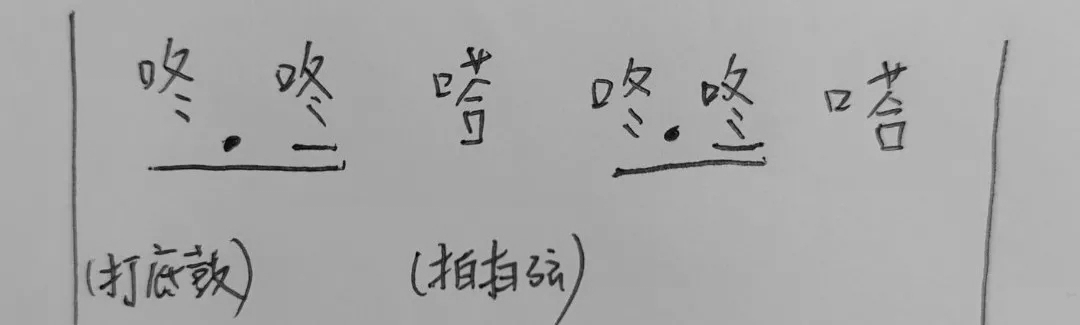 咚.咚 嗒 咚.咚 嗒
(打底鼓) (拍拍弦)